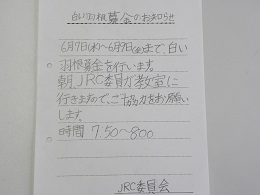 白い羽根募金のお知らせ
6月7日(水)~6月9日(金)まで、白い
羽根募金を行います。
朝、JRC委員が教室に
行きますので、ご協力をお願い
します。
時間 7:50~8:00
JRC委員会